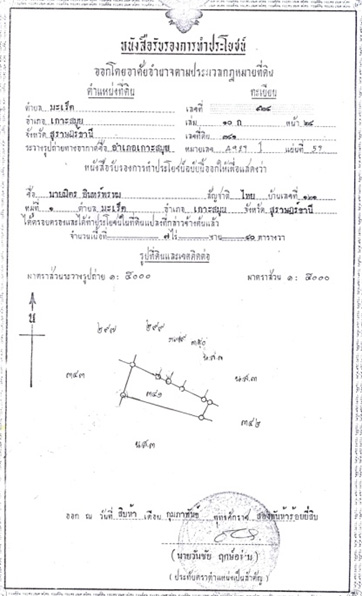 หนังสือรับรองการทำประโยชน์
ออกโดยอาศัยอำนาจตามประมวลกฎหมายที่ดิน
ตำแหน่งที่ดิน ทะเบียน
ตำบล มะเร็ต เลขที่
อำเภอ เกาะสมุย เล่ม ๑๐ ก หน้า ๒๘
จังหวัด สุราษฎร์ธานี เลขที่ดิน ๓๔๑
ระวางรูปถ่ายทางอากาศชื่อ อำเภอเกาะสมุย หมายเลข แผ่นที่ 59
หนังสือรับรองการทำประโยชน์ฉบับนี้ออกให้เพื่อแสดงว่า
ชื่อ อินทร์พรหม สัญชาติ ไทย บ้านเลขที่
หมู่ที่ ๑ ตำบล มะเร็ต อำเภอ เกาะสมุย จังหวัด สุราษฎร์ธานี
ได้ครอบครองและได้ทำประโยชน์ในที่ดินแปลงที่กล่าวข้างต้นแล้ว
จำนวนเนื้อที่ ๗ ไร่ งาน ๔๐ ตารางวา
รูปที่ดินและเขตติดต่อ
มาตราส่วนระวางรูปถ่าย ๑: ๕๐๐๐ มาตราส่วน ๑: ๕๐๐๐
น
๒๙๗ ๒๙๙
น.ส.๓
๓๔๓
๓๔๑
๓๔๒
น.ส.๓
ออก ณ วันที่ สิบห้า เดือน กุมภาพันธ์ พุทธศักราช สองพันห้าร้อยยี่สิบ
(นายวันชัย)
(ประทับตราตำแหน่งเป็นสำคัญ)